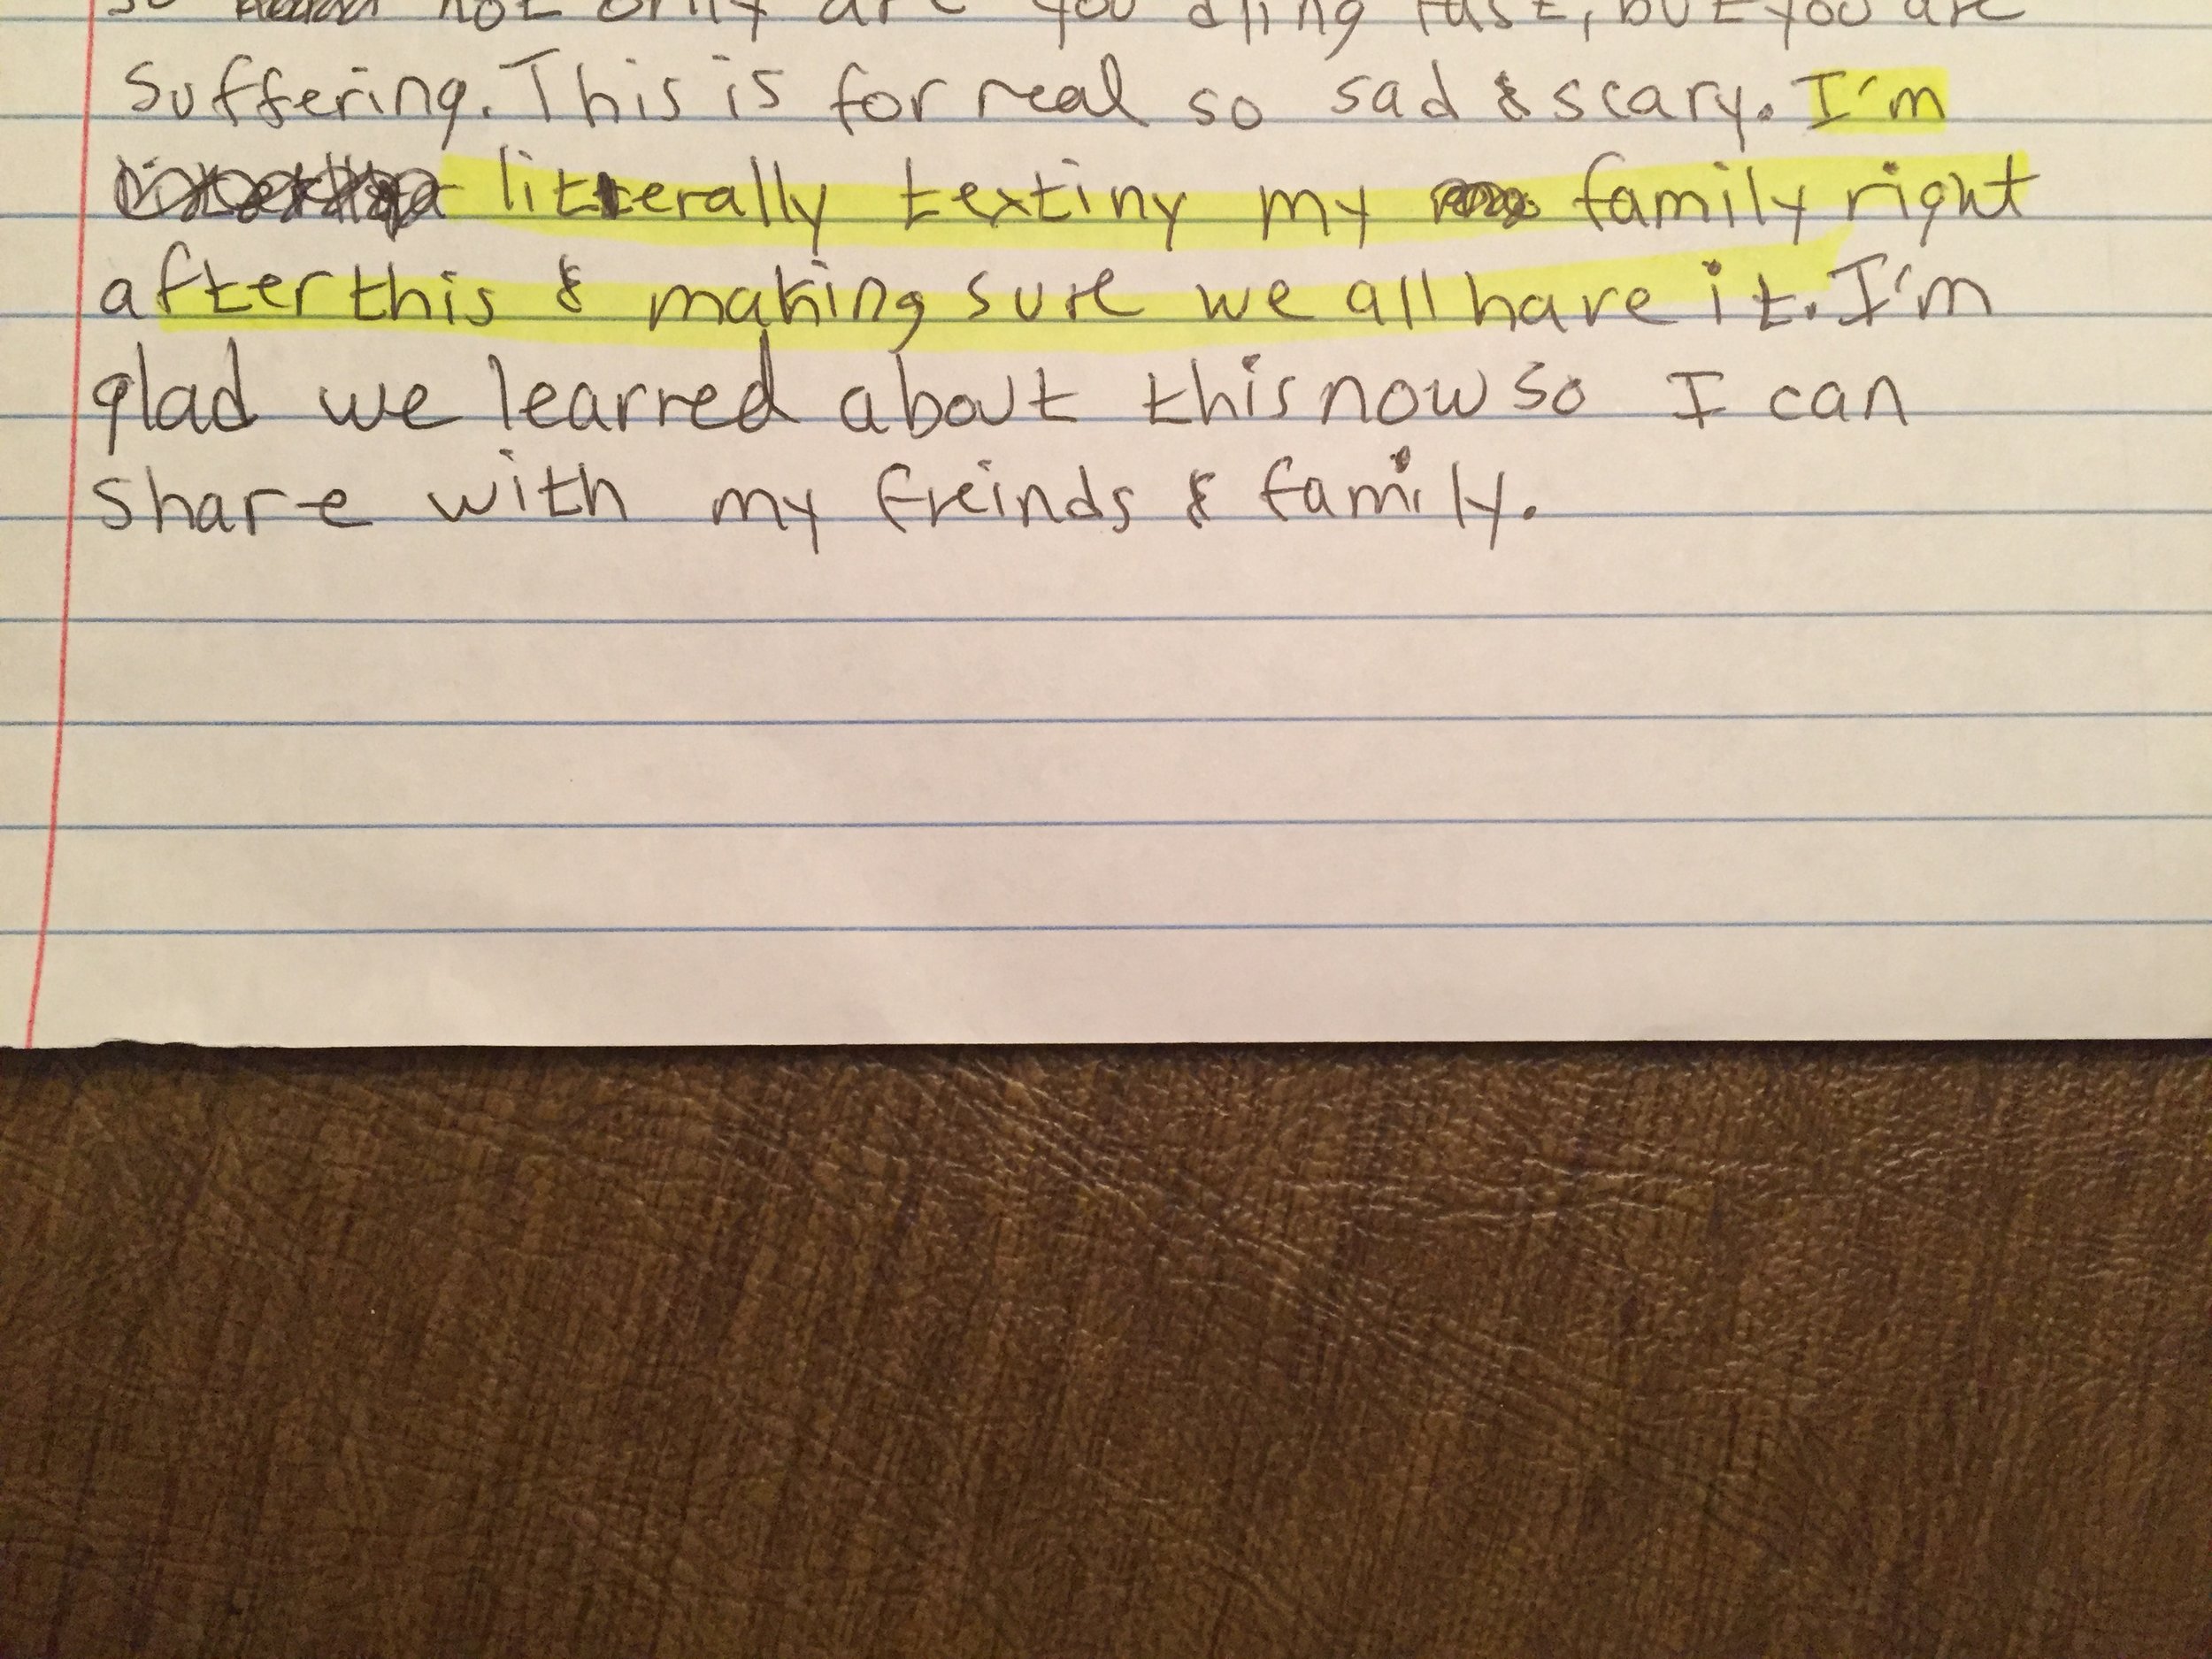 not only are you dying fast, but you are
suffering. This is for real so sad & scary. I'm
litterally texting my family right
after this & making sure we all have it. I'm
glad we learned about this now so I can
share with my freinds & family.